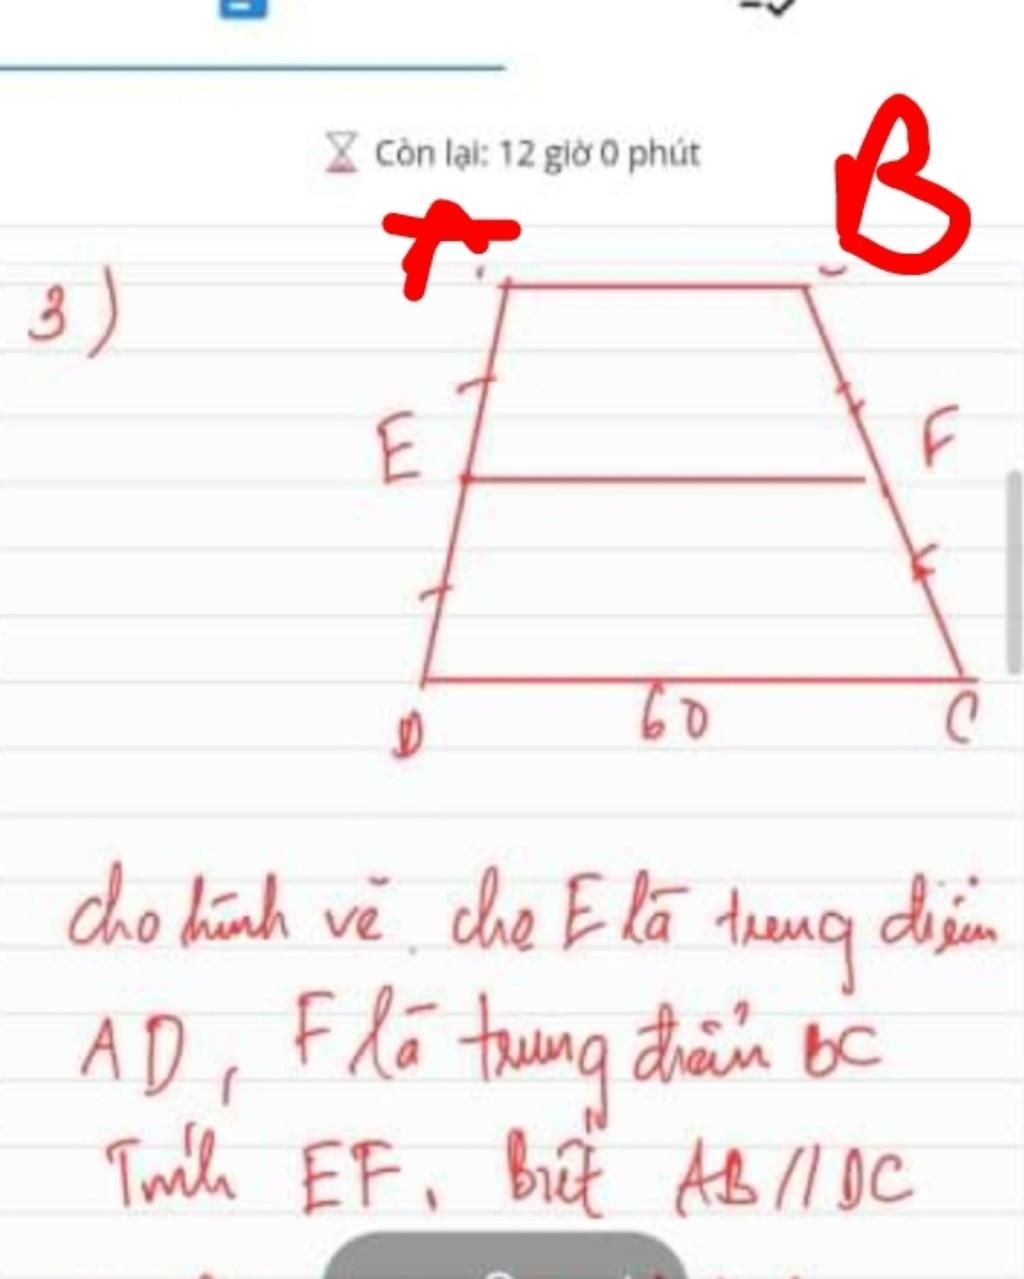 Còn lại: 12 giờ 0 phút
A
B
3)
E
F
D
60
C
cho hình vẽ. cho E là trung điểm
AD, F là trung điểm BC
Tính EF, biết AB // DC